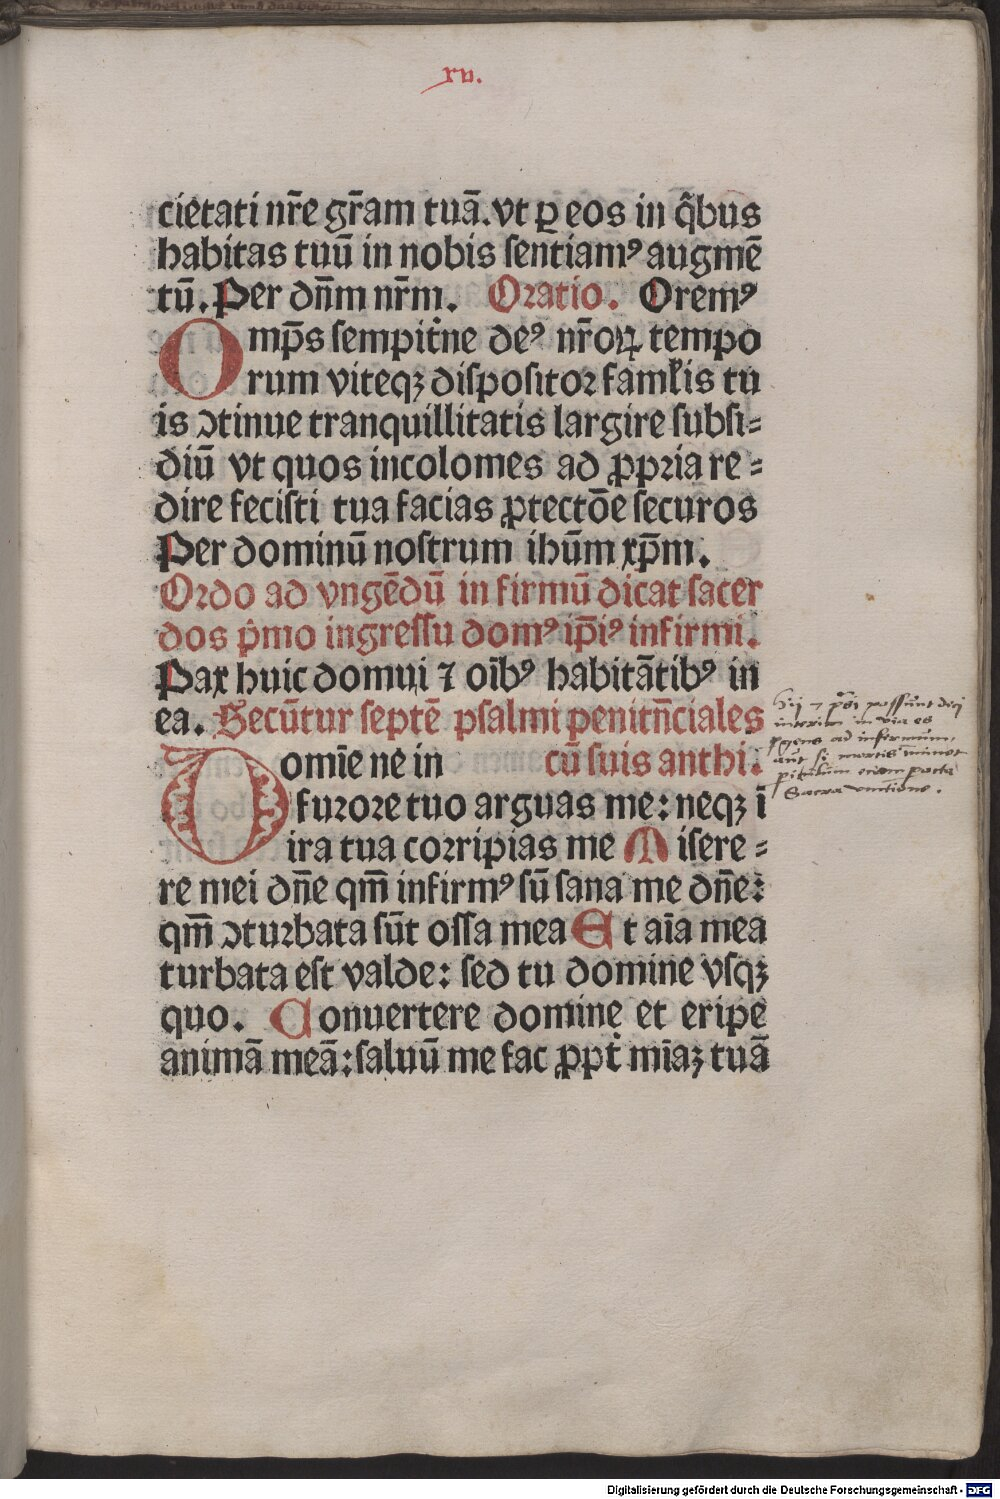 xv.
cietati nr̄e gr̄am tuā. vt ꝑ eos in q̄bus
habitas tuū in nobis sentiamꝰ augmē
tū. Per dn̄m nr̄m. Oratio. Oremꝰ
Omp̄s sempit̄ne deꝰ nr̄oꝝ tempo
rum viteqꝫ dispositor famĺis tu
is ꝯtinue tranquillitatis largire subsi-
diū vt quos incolomes ad ꝓpria re-
dire fecisti tua facias ꝓtectōe securos
Per dominū nostrum ihūm xp̄m.
Ordo ad vngēdū infirmū dicat sacer
dos p̄mo ingressu domꝰ ip̄iꝰ infirmi.
Pax huic domui ⁊ oībꝰ habitātibꝰ in
ea. Secūtur septē psalmi penitn̄ciales
Domīe ne in cū suis anthi.
furore tuo arguas me: neqꝫ ī
ira tua corripias me Misere-
re mei dn̄e qm̄ infirmꝰ sū sana me dn̄e:
qm̄ ꝯturbata sūt ossa mea Et aīa mea
turbata est valde: sed tu domine vsqꝫ
quo. Conuertere domine et eripe
animā meā: saluū me fac ꝓpt̄ mīaꝫ tuā
possunt dici
interim in via
ad infirmum
aut si mortis
Sacra vnctione.
Digitalisierung gefördert durch die Deutsche Forschungsgemeinschaft - DFG